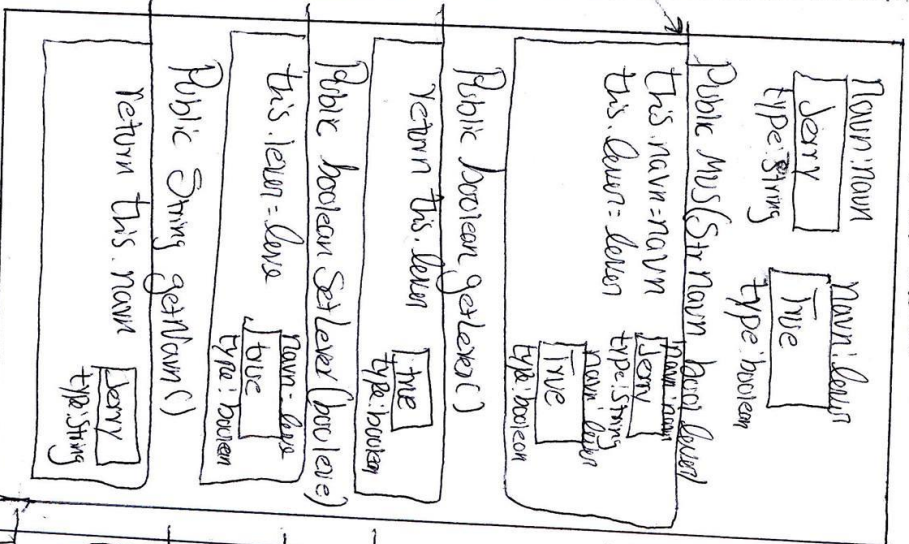 navn: navn
Jerry
type: String
navn: lever
True
type: boolean
Public Mus(Str navn bool lever)
this.navn = navn
this.lever = lever
navn: navn
Jerry
type: String
navn: lever
True
type: boolean
Public boolean getLever()
return this.lever
true
type: boolean
Public boolean SetLever(boo leve)
this.lever = leve
navn = leve
true
type: boolean
Public String getNavn()
return this.navn
Jerry
type: String